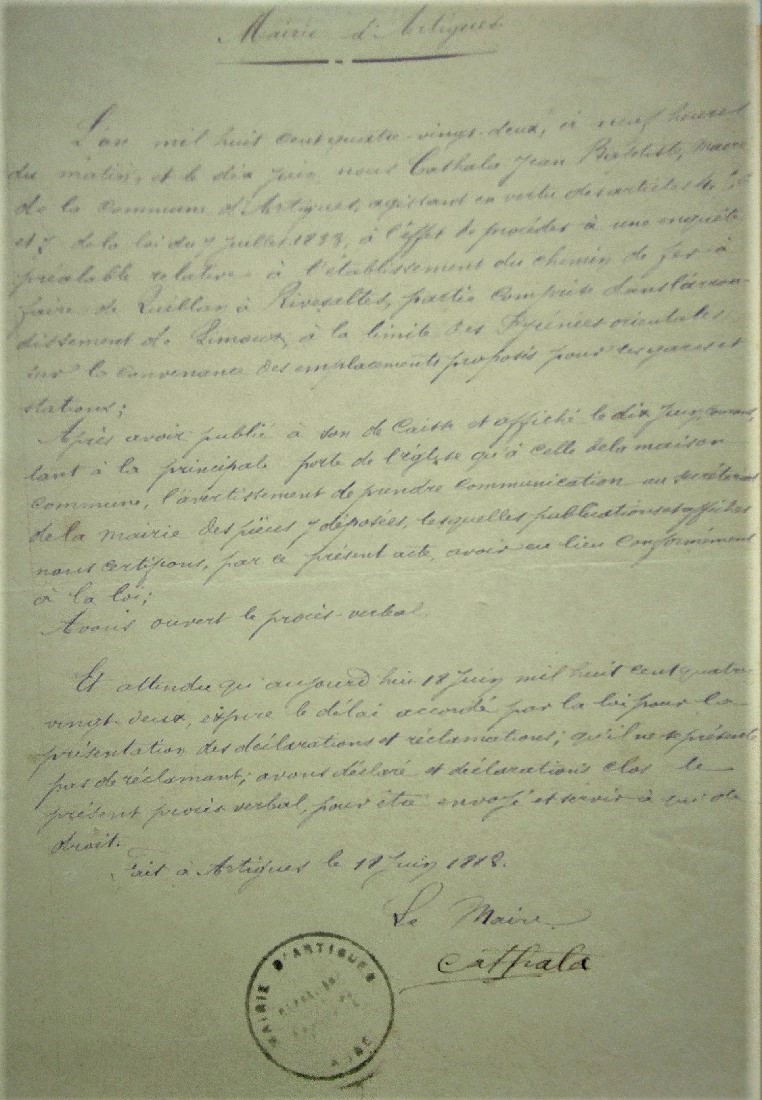 Mairie d'Artigues
L'an mil huit cent quatre-vingt-deux, à neuf heures
du matin, et le dix Juin, nous Cathala Jean Baptiste, Maire
de la Commune d'Artigues, agissant en vertu des articles
et 7 de la loi du 7 Juillet 1833, à l'effet de procéder à une enquête
préalable relative à l'établissement du chemin de fer à
faire de Quillan à Rivesaltes, partie comprise dans l'arron-
dissement de Limoux, à la limite des Pyrénées orientales
sur la convenance des emplacements proposés pour les gares et
stations;
Après avoir publié à son de Caisse et affiché le dix Juin, courant,
tant à la principale porte de l'église qu'à celle de la maison
commune, l'avertissement de prendre communication au secrétariat
de la mairie des pièces y déposées, lesquelles publications et affiches
nous certifions, par ce présent acte, avoir eu lieu conformément
à la loi;
Avons ouvert le procès-verbal.
Et attendu qu'aujourd'hui 18 Juin mil huit cent quatre
vingt-deux, expire le délai accordé par la loi pour la
présentation des déclarations et réclamations; qu'il ne se présente
pas de réclamant; avons déclaré et déclarations clos le
présent procès verbal, pour être envoyé et servir à qui de
droit.
Fait à Artigues le 18 Juin
Le Maire
Cathala
MAIRIE D'ARTIGUES
AUDE